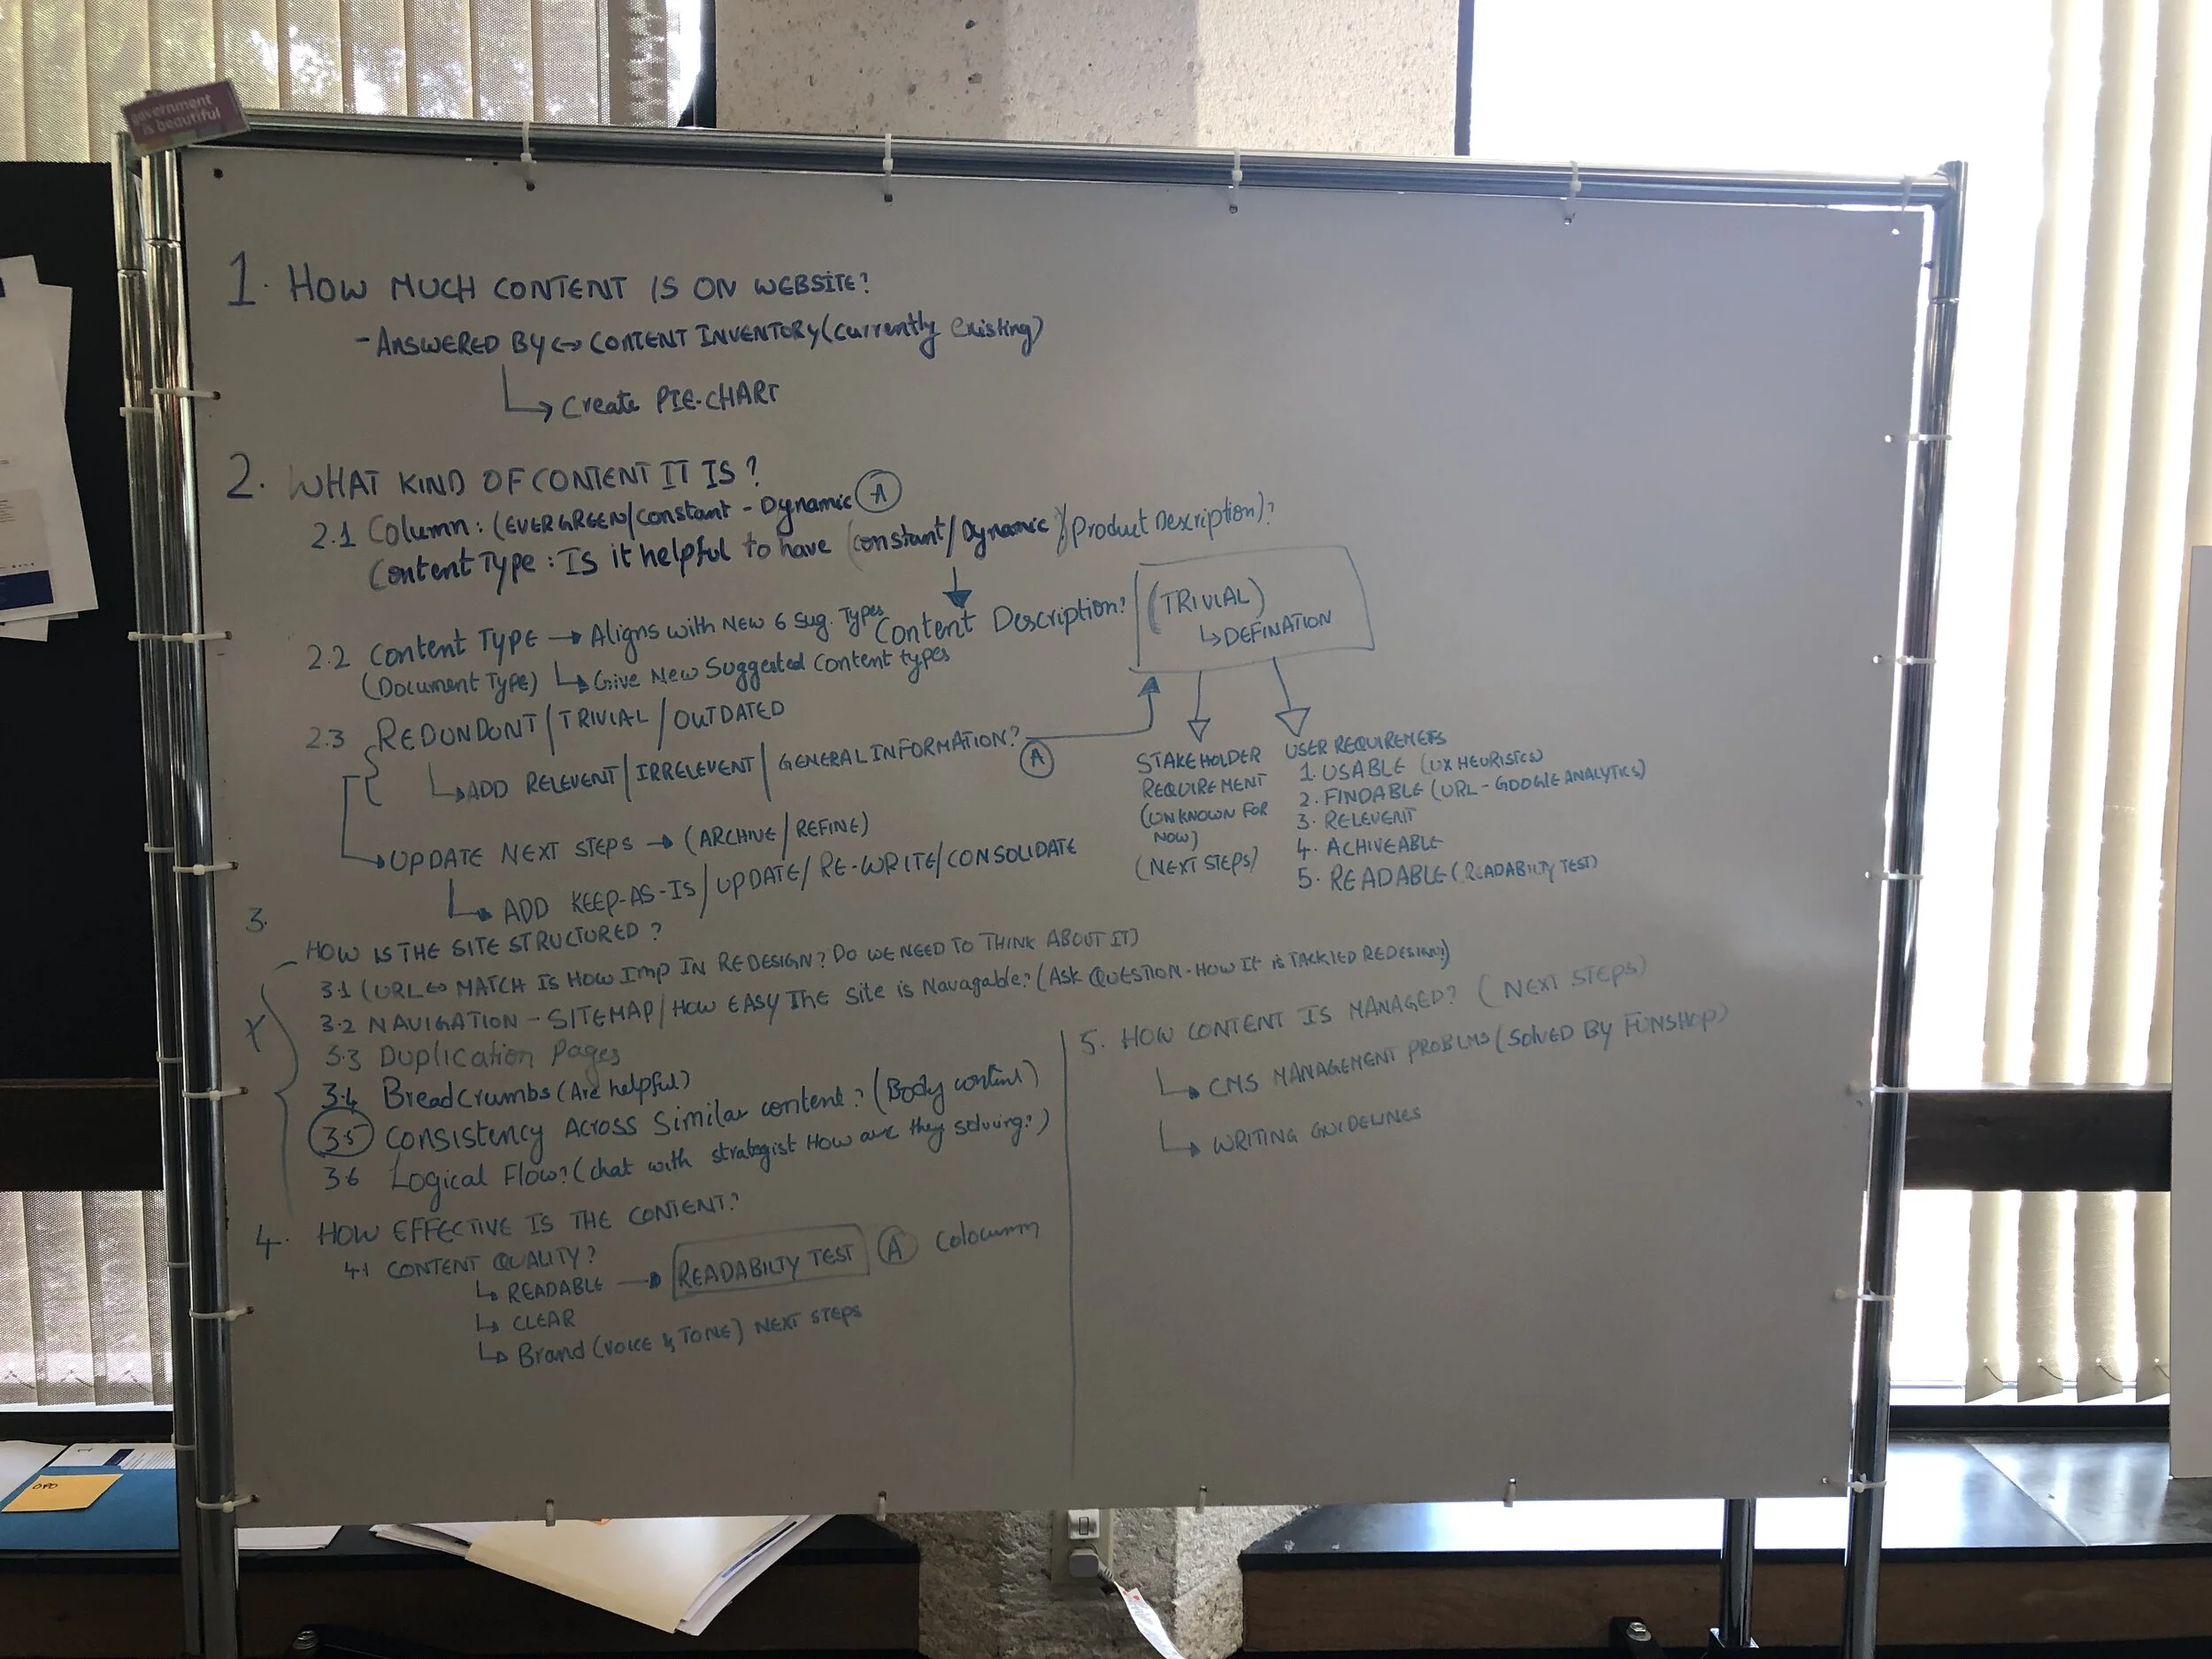 government
is beautiful
1. HOW MUCH CONTENT IS ON WEBSITE?
- ANSWERED BY ↔ CONTENT INVENTORY (Currently existing)
↳ Create PIE-CHART
2. WHAT KIND OF CONTENT IT IS?
2.1 Column: (EVERGREEN/Constant - Dynamic (A)
Content Type: Is it helpful to have (constant/Dynamic)(Product Description)?
↓
Content Description?
2.2 Content Type → Aligns with New 6 Sug. Types
(Document Type) ↳ Give New Suggested Content types
(TRIVIAL)
↳ DEFINATION
2.3 REDUNDONT/TRIVIAL/OUTDATED
↳ ADD RELEVENT/IRRELEVENT/GENERAL INFORMATION? (A)
↳ UPDATE NEXT STEPS → (ARCHIVE/REFINE)
↳ ADD KEEP-AS-IS/UPDATE/RE-WRITE/CONSOLIDATE
STAKEHOLDER
REQUIREMENT
(UNKNOWN FOR
NOW)
(NEXT STEPS)
USER REQUIREMETS
1. USABLE (UX HEURISTICS)
2. FINDABLE (URL - GOOGLE ANALYTICS)
3. RELEVENT
4. ACHIVEABLE
5. READABLE (READABILTY TEST)
3.
HOW IS THE SITE STRUCTURED?
3.1 (URL ↔ MATCH IS HOW Imp IN REDESIGN? DO WE NEED TO THINK ABOUT IT)
3.2 NAVIGATION - SITEMAP/HOW EASY THE Site is Navagable? (ASK QUESTION - HOW It is TACKLED REDESIGN?)
3.3 Duplication Pages
3.4 Breadcrumbs (Are helpful)
3.5 Consistency Across Similar content? (Body content)
3.6 Logical Flow? (chat with strategist How are they solving?)
4. HOW EFFECTIVE IS THE CONTENT?
4.1 CONTENT QUALITY?
↳ READABLE → READABILTY TEST (A) Coloumn
↳ CLEAR
↳ Brand (VOICE & TONE) NEXT STEPS
5. HOW CONTENT IS MANAGED? (NEXT STEPS)
↳ CMS MANAGEMENT PROBLMS (SOLVED BY FUNSHOP)
↳ WRITING GUIDELINES